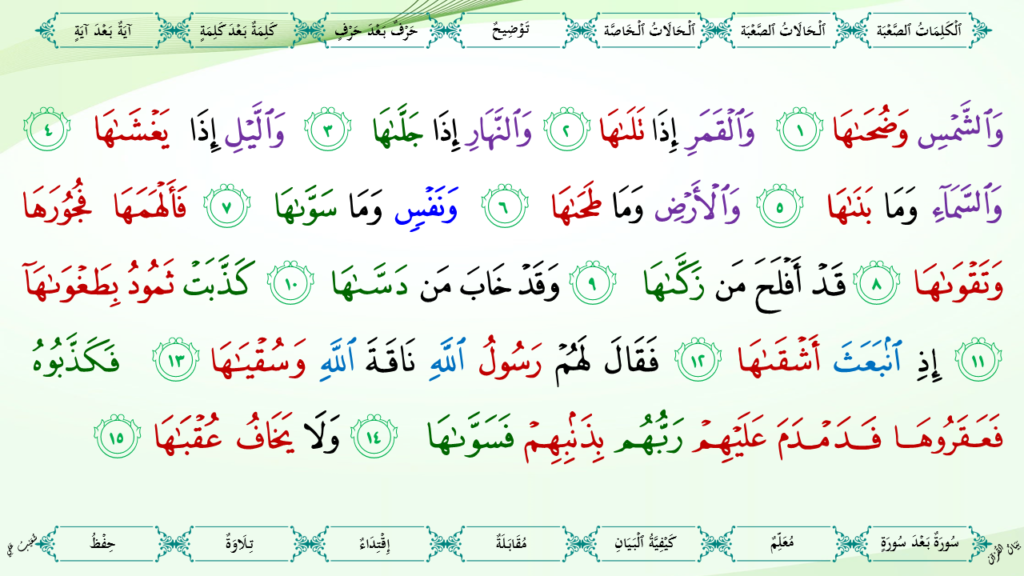 اَلْكَلِمَاتُ الصَّعْبَة
اَلْحَالَاتُ الصَّعْبَة
اَلْحَالَاتُ الْخَاصَّة
تَوْضِيحٌ
حَرْفٌ بَعْدَ حَرْفٍ
كَلِمَةٌ بَعْدَ كَلِمَةٍ
آيَةٌ بَعْدَ آيَةٍ
وَٱلشَّمْسِ وَضُحَىٰهَا ١ وَٱلْقَمَرِ إِذَا تَلَىٰهَا ٢ وَٱلنَّهَارِ إِذَا جَلَّىٰهَا ٣ وَٱلَّيْلِ إِذَا يَغْشَىٰهَا ٤
وَٱلسَّمَآءِ وَمَا بَنَىٰهَا ٥ وَٱلْأَرْضِ وَمَا طَحَىٰهَا ٦ وَنَفْسٍ وَمَا سَوَّىٰهَا ٧ فَأَلْهَمَهَا فُجُورَهَا
وَتَقْوَىٰهَا ٨ قَدْ أَفْلَحَ مَن زَكَّىٰهَا ٩ وَقَدْ خَابَ مَن دَسَّىٰهَا ١٠ كَذَّبَتْ ثَمُودُ بِطَغْوَىٰهَآ
١١ إِذِ ٱنۢبَعَثَ أَشْقَىٰهَا ١٢ فَقَالَ لَهُمْ رَسُولُ ٱللَّهِ نَاقَةَ ٱللَّهِ وَسُقْيَـٰهَا ١٣ فَكَذَّبُوهُ
فَعَقَرُوهَا فَدَمْدَمَ عَلَيْهِمْ رَبُّهُم بِذَنۢبِهِمْ فَسَوَّىٰهَا ١٤ وَلَا يَخَافُ عُقْبَـٰهَا ١٥
سُورَةٌ بَعْدَ سُورَةٍ
مُعَلِّمٌ
كَيْفِيَّةُ الْبَيَانِ
مُقَابَلَةٌ
إِقْتِدَاءٌ
تِلَاوَةٌ
حِفْظٌ